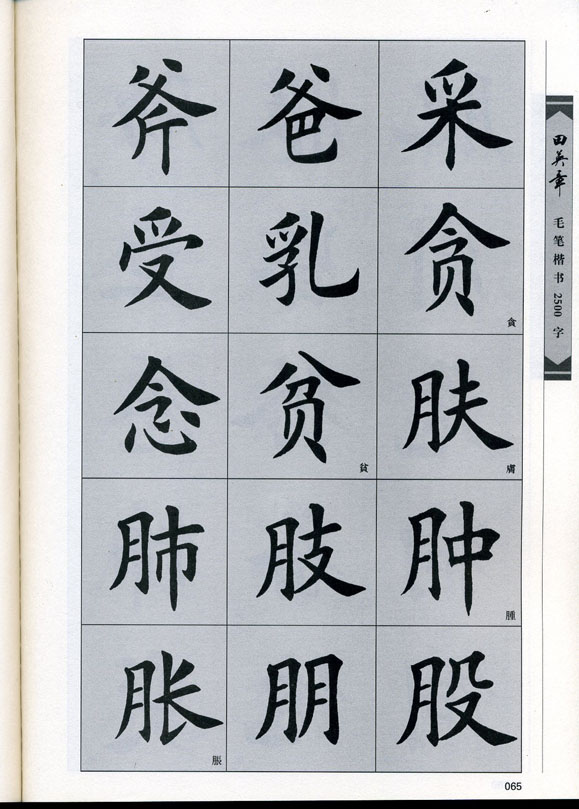 斧 爸 采
受 乳 贪 貪
念 贫 貧 肤 膚
肺 肢 肿 腫
胀 脹 朋 股
田英章 毛笔楷书 2500 字
065